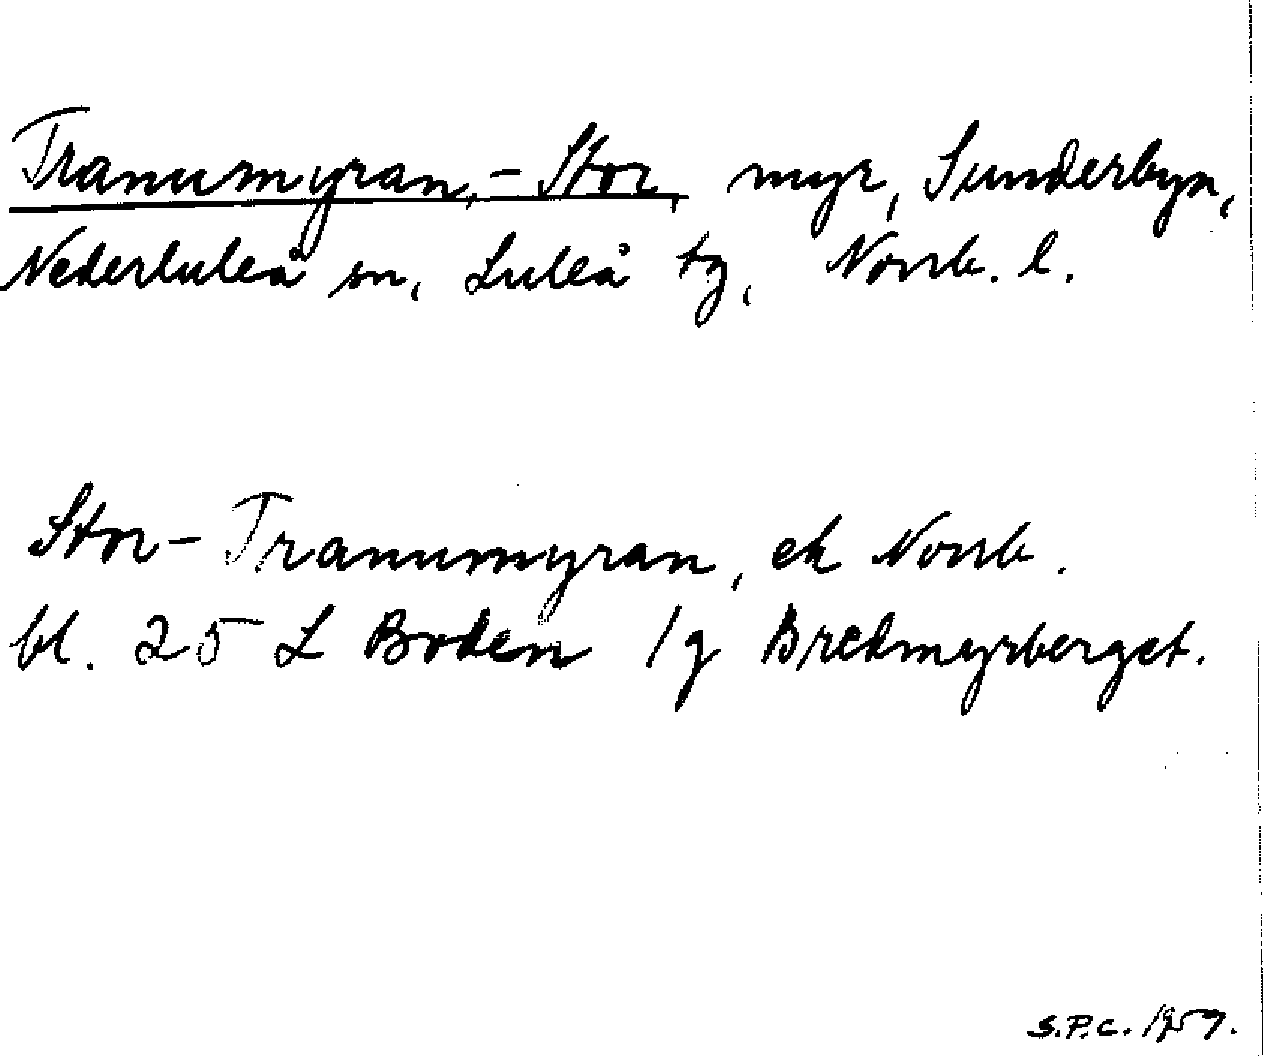 Tranumyran, - Stor, myr, Sunderbyn,
Nederluleå sn, Luleå tg, Norrb. l.
Stor-Tranumyran, ek Norrb.
bl. 25 L Boden /g Bredmyrberget.
S.P.C. 1959.